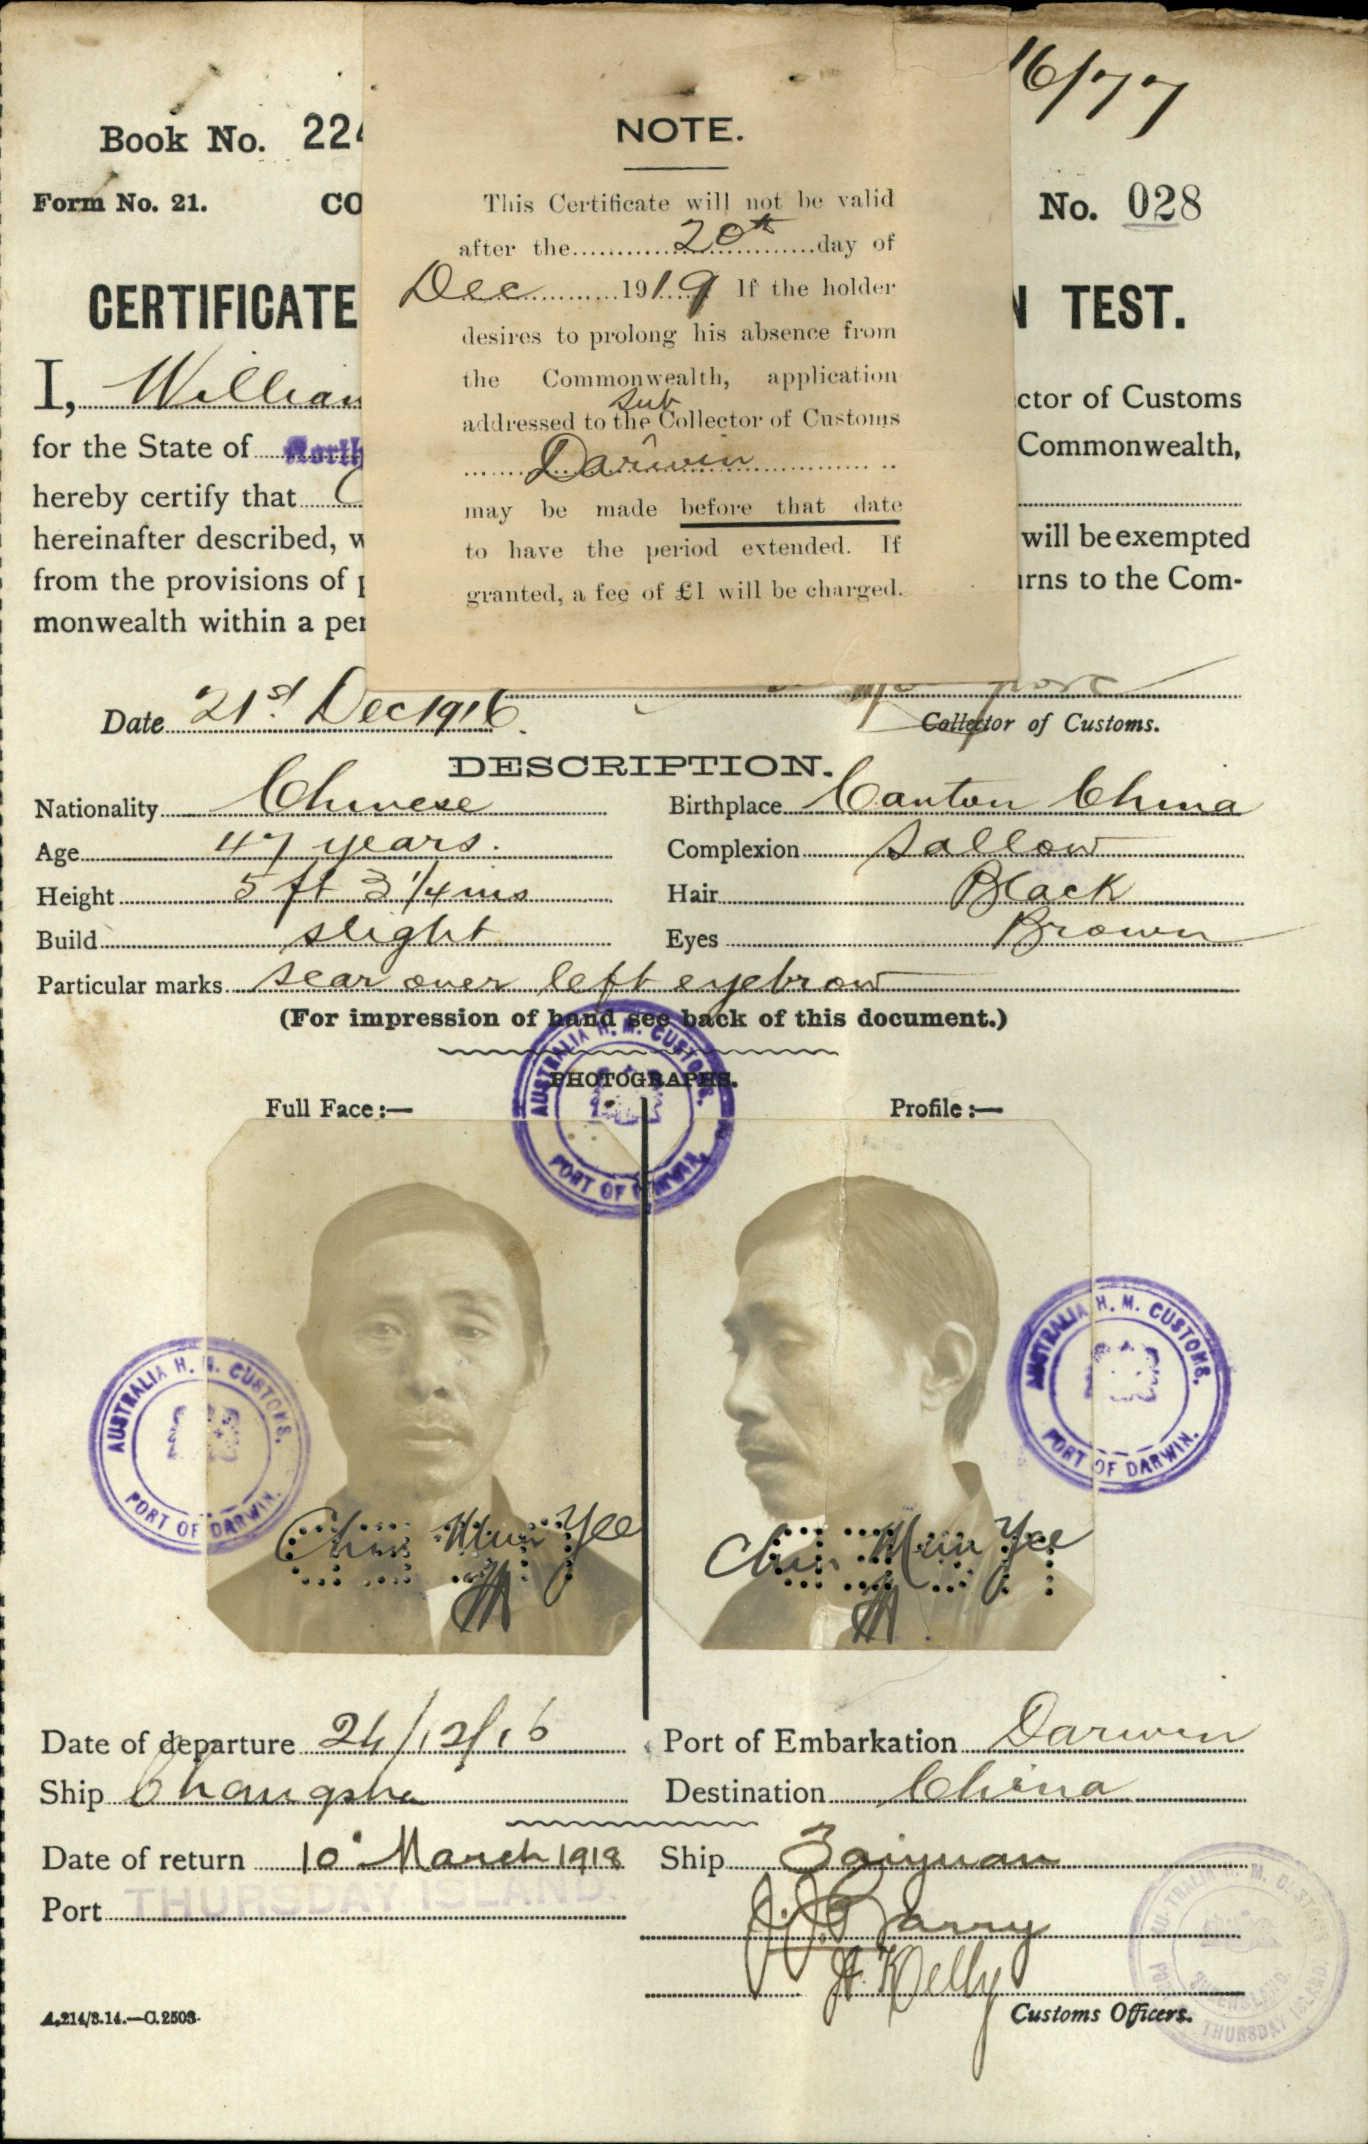 16/77
Book No. 224
Form No. 21. CO
No. 028
CERTIFICATE
N TEST.
I, William
ctor of Customs
for the State of North
Commonwealth,
hereby certify that
hereinafter described, w
will be exempted
from the provisions of p
urns to the Com-
monwealth within a per
NOTE.
This Certificate will not be valid
after the 20th day of
Dec 1919 If the holder
desires to prolong his absence from
the Commonwealth, application
addressed to the Sub Collector of Customs
Darwin
may be made before that date
to have the period extended. If
granted, a fee of £1 will be charged.
Date 21st Dec 1916.
Collector of Customs.
DESCRIPTION.
Nationality Chinese Birthplace Canton China
Age 47 years. Complexion Sallow
Height 5 ft 3 1/4 ins Hair Black
Build slight Eyes Brown
Particular marks scar over left eyebrow
(For impression of hand see back of this document.)
PHOTOGRAPHS.
AUSTRALIA H. M. CUSTOMS.
PORT OF DARWIN.
Full Face:— Profile:—
AUSTRALIA H. M. CUSTOMS.
PORT OF DARWIN.
AUSTRALIA H. M. CUSTOMS.
PORT OF DARWIN.
Chin Mun Yee
Chin Mun Yee
Date of departure 24/12/16 Port of Embarkation Darwin
Ship Changsha Destination China
Date of return 10 March 1918 Ship Taiyuan
Port THURSDAY ISLAND.
J. J. Barry
H. Kelly
Customs Officers.
AUSTRALIA H. M. CUSTOMS
QUEENSLAND.
PORT OF THURSDAY ISLAND.
A.214/3.14.—C.2503.